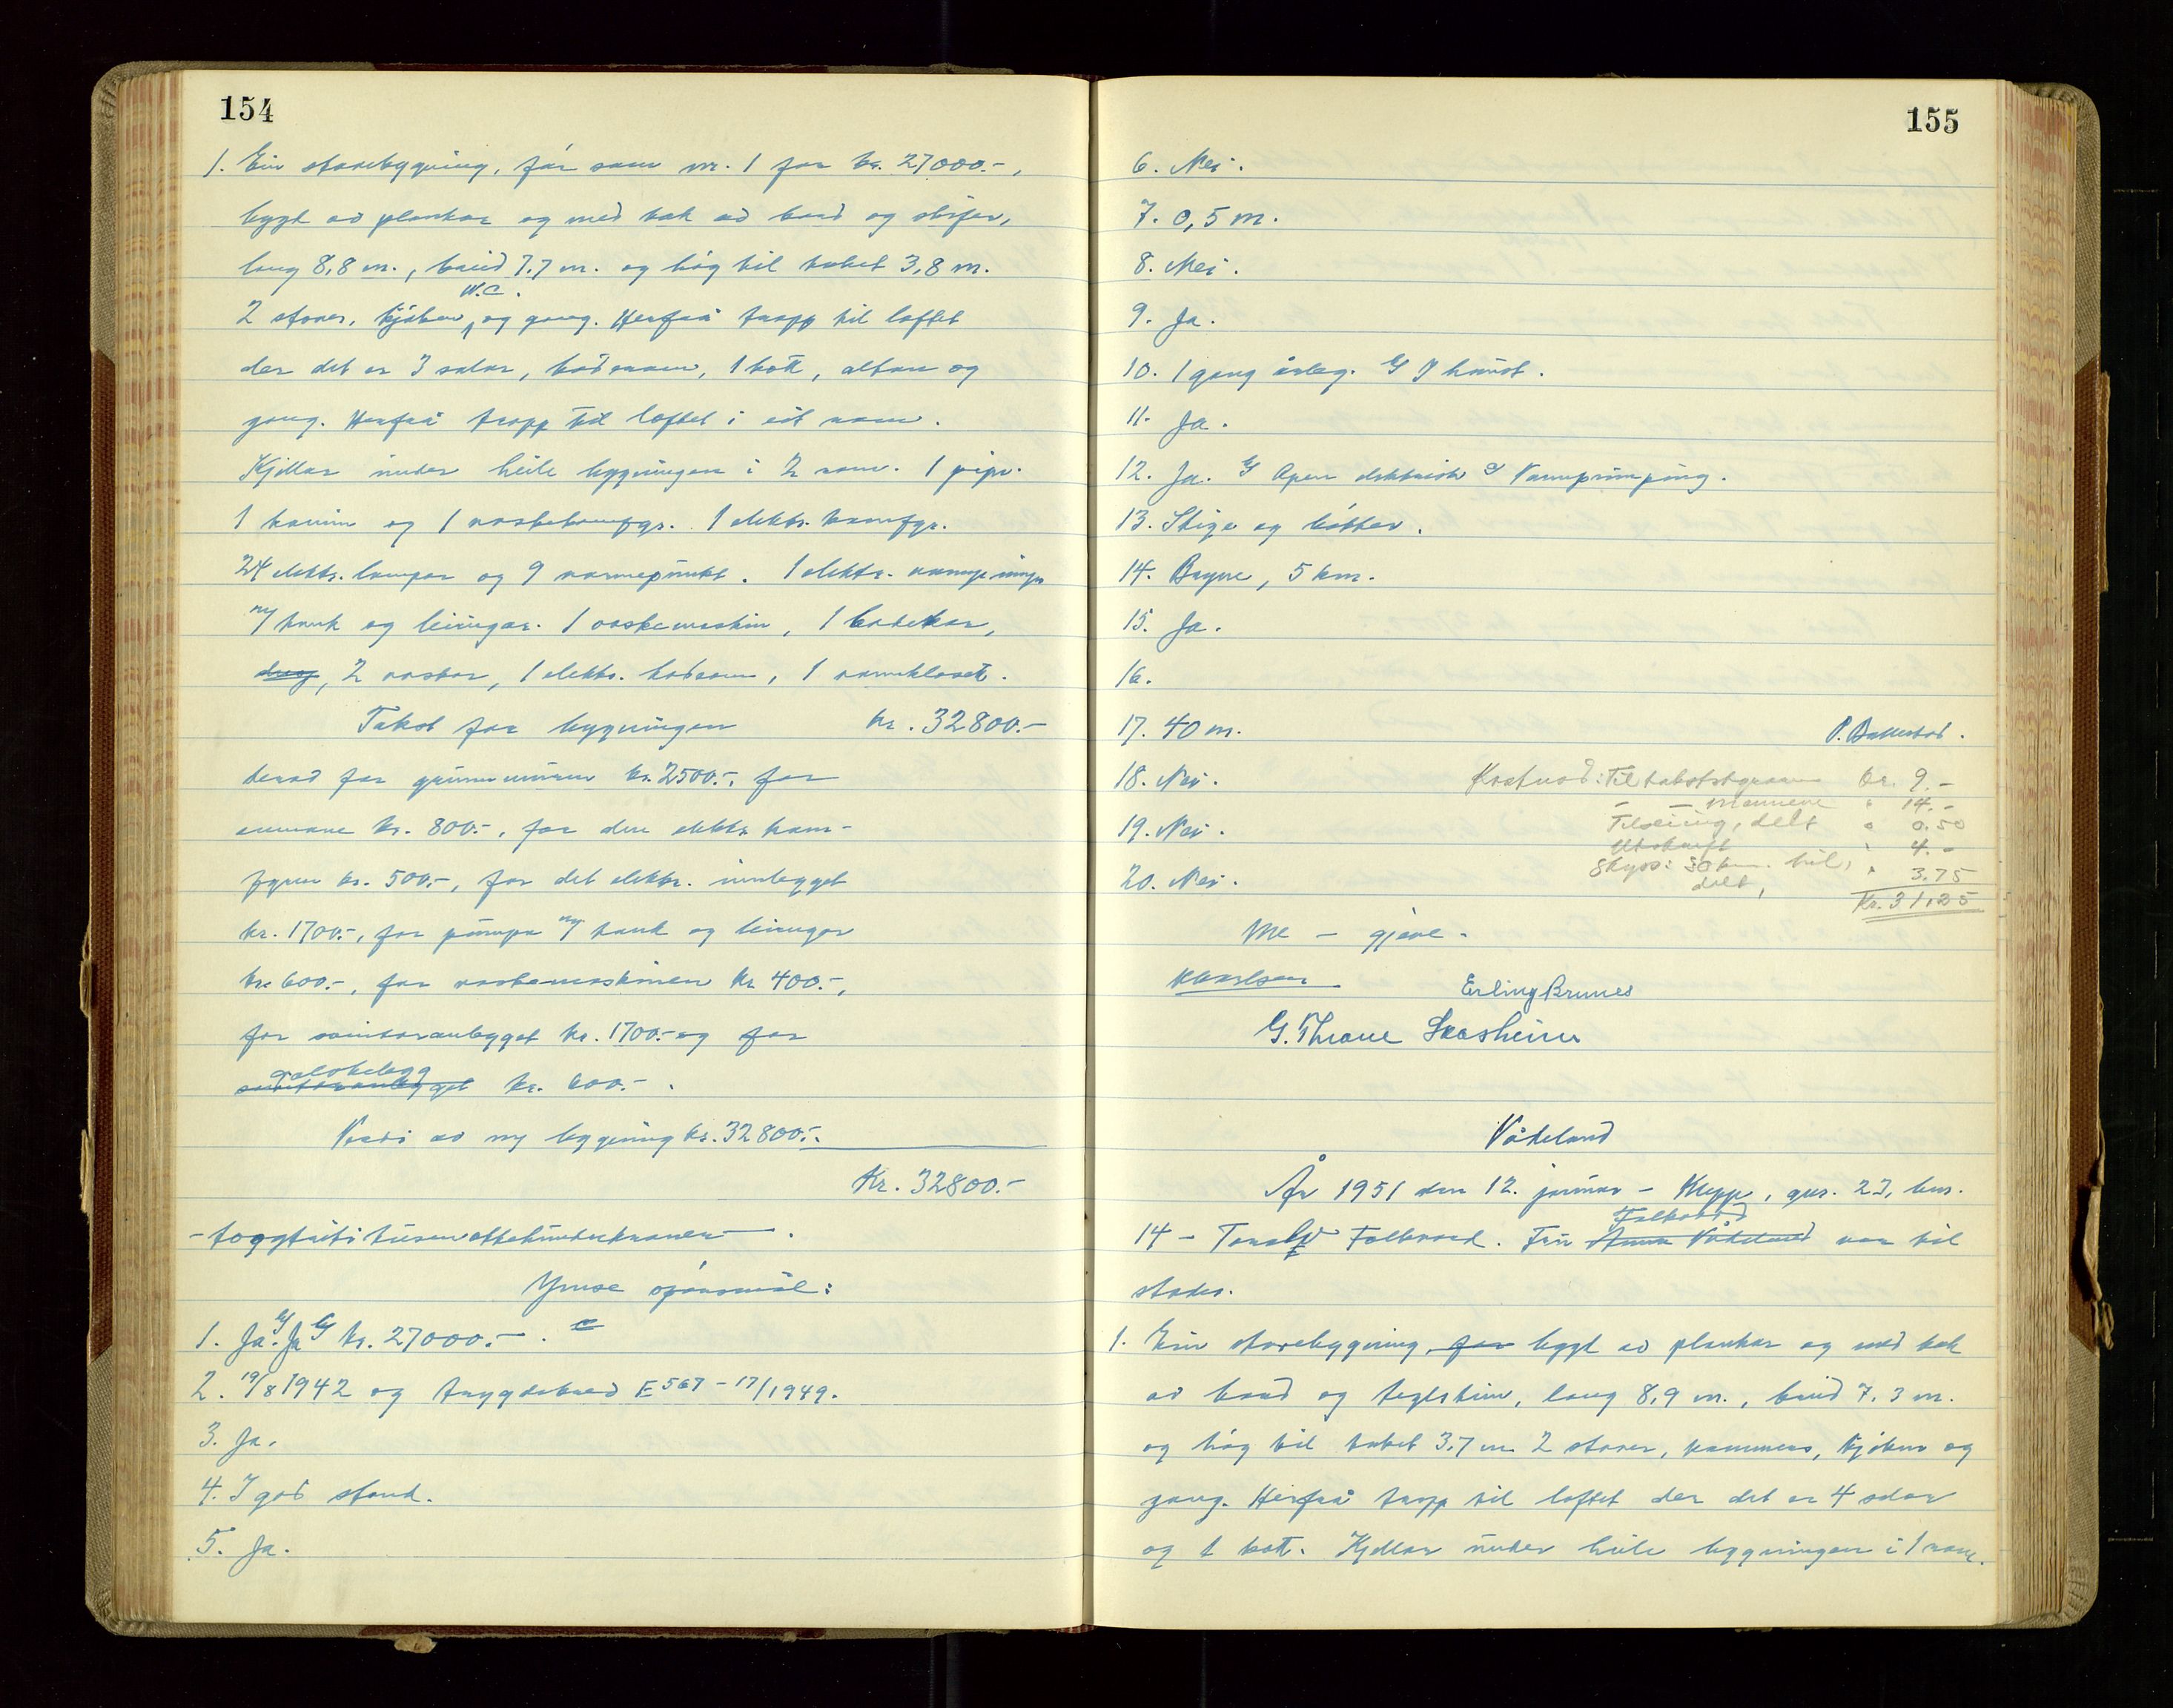 154
1. Ein stovebygning, før som nr. 1 for kr. 27000.-,
bygt av plankar og med tak av bord og skifer,
lang 8,8 m., breid 7,7 m. og høg til taket 3,8 m.
W.C.
2 stover, kjøken, og gang. Herfrå tropp til loftet
der det er 3 salar, baderom, 1 kott, altan og
gang. Herfrå tropp til loftet i eit rom.
Kjellar under heile bygningen i 2 rom. 1 pipe.
1 kamin og 1 vaskekomfyr. 1 elektr. komfyr.
24 elektr. lampor og 9 varmepunkt. 1 elektr. vasspumpe
m/ tank og leiingar. 1 vaskemaskin, 1 badekar,
2 vaskar, 1 elektr. badeomn, 1 vannklosett.
Takst for bygningen kr. 32800.-
derav for grunnmuren kr. 2500.-, for
omnane kr. 800.-, for den elektr. kom-
fyren kr. 500.-, for det elektr. innlegget
kr. 1700.-, for pumpa m/ tank og leiingar
kr. 600.-, for vaskemaskinen kr. 400.-,
for sanitæranlegget kr. 1700.- og for
golvbelegg
sanitæranlegget kr. 600.-.
Verdi av ny bygning kr. 32800.-.
Kr. 32800.-
- toogtrititusenåttehundrekroner -.
Ymse spørsmål:
1. Ja. Ja kr. 27000.-.
2. 19/8 1942 og trygdebrev E 567 - 17/1949.
3. Ja.
4. I god stand.
5. Ja.
155
6. Nei.
7. 0,5 m.
8. Nei.
9. Ja.
10. 1 gang årleg. I haust.
11. Ja.
12. Ja. Open elektrisk Vasspumping.
13. Stige og bøtter.
14. Bryne, 5 km.
15. Ja.
16.
17. 40 m.
18. Nei.
19. Nei.
20. Nei.
Kostnad: Til takststyraren kr. 9.-
- - mennene " 14.-
Tilseiing, delt " 0.50
Utskrift " 4.-
Skyss: 30 km. bil, " 3.75
delt,
Kr. 31.25
Me - gjeve.
Erling Brunes
G. Thrane Skasheim
Vådeland
År 1951 den 12. januar - Klepp, gnr. 23, bnr.
Folkvord
14 - Toralv Folkvord. Fru Anna Vådeland var til
stades.
1. Ein stovebygning, før bygt av plankar og med tak
av bord og teglstein, lang 8,9 m., breid 7,3 m.
og høg til taket 3,7 m. 2 stover, kammers, kjøken og
gang. Herfrå tropp til loftet der det er 4 salar
og 1 kott. Kjellar under heile bygningen i 1 rom.